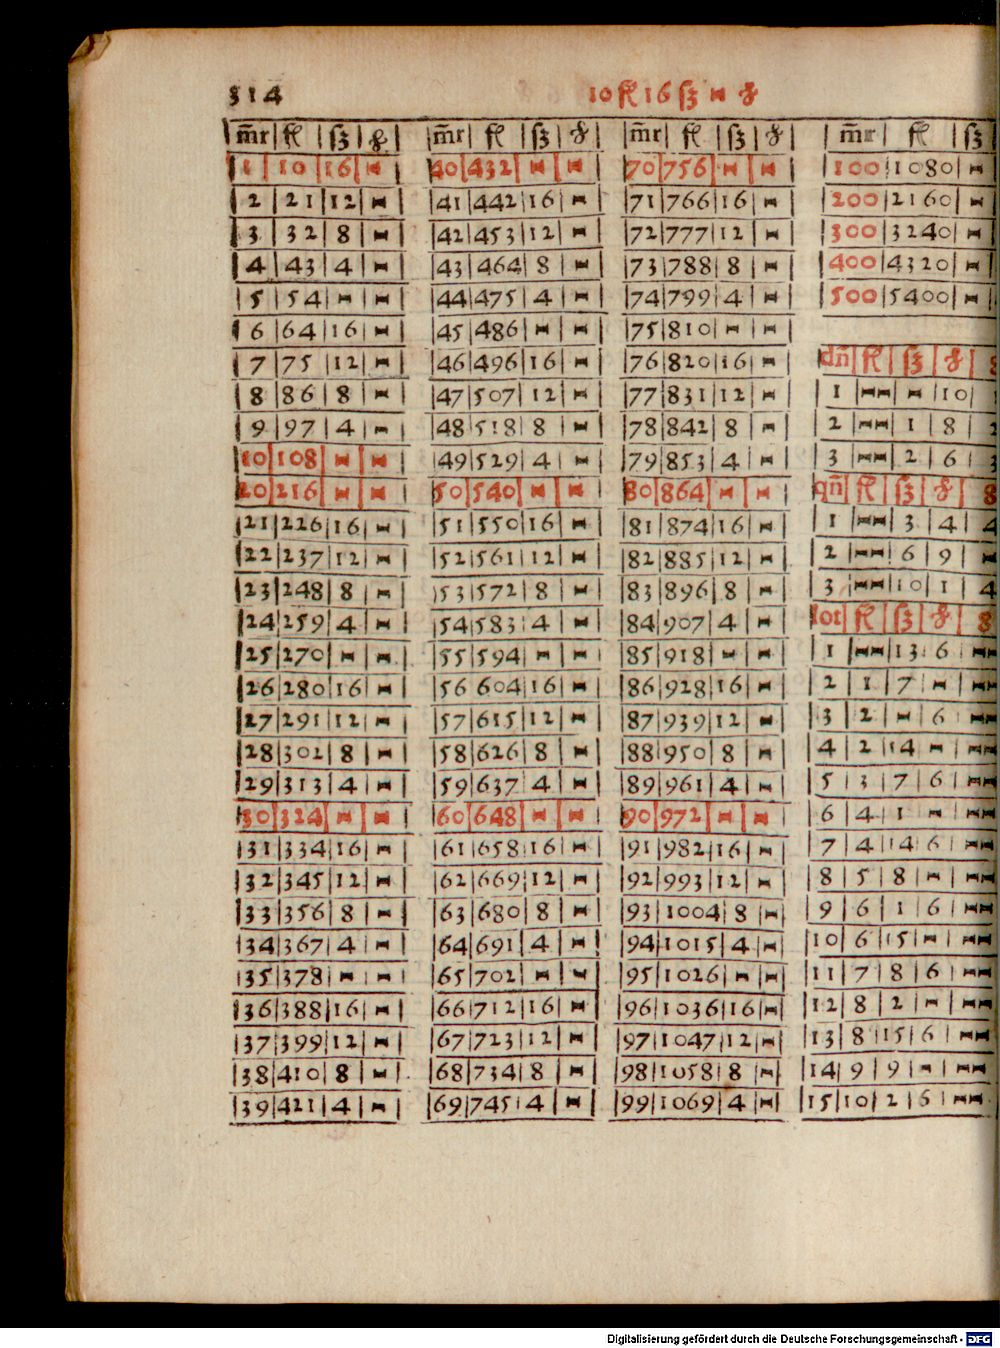 314
10 fl 16 ß ⋈ ₰
m̄r fl ß ₰
1 10 16 ⋈
2 21 12 ⋈
3 32 8 ⋈
4 43 4 ⋈
5 54 ⋈ ⋈
6 64 16 ⋈
7 75 12 ⋈
8 86 8 ⋈
9 97 4 ⋈
10 108 ⋈ ⋈
20 216 ⋈ ⋈
21 226 16 ⋈
22 237 12 ⋈
23 248 8 ⋈
24 259 4 ⋈
25 270 ⋈ ⋈
26 280 16 ⋈
27 291 12 ⋈
28 302 8 ⋈
29 313 4 ⋈
30 324 ⋈ ⋈
31 334 16 ⋈
32 345 12 ⋈
33 356 8 ⋈
34 367 4 ⋈
35 378 ⋈ ⋈
36 388 16 ⋈
37 399 12 ⋈
38 410 8 ⋈
39 421 4 ⋈
m̄r fl ß ₰
40 432 ⋈ ⋈
41 442 16 ⋈
42 453 12 ⋈
43 464 8 ⋈
44 475 4 ⋈
45 486 ⋈ ⋈
46 496 16 ⋈
47 507 12 ⋈
48 518 8 ⋈
49 529 4 ⋈
50 540 ⋈ ⋈
51 550 16 ⋈
52 561 12 ⋈
53 572 8 ⋈
54 583 4 ⋈
55 594 ⋈ ⋈
56 604 16 ⋈
57 615 12 ⋈
58 626 8 ⋈
59 637 4 ⋈
60 648 ⋈ ⋈
61 658 16 ⋈
62 669 12 ⋈
63 680 8 ⋈
64 691 4 ⋈
65 702 ⋈ ⋈
66 712 16 ⋈
67 723 12 ⋈
68 734 8 ⋈
69 745 4 ⋈
m̄r fl ß ₰
70 756 ⋈ ⋈
71 766 16 ⋈
72 777 12 ⋈
73 788 8 ⋈
74 799 4 ⋈
75 810 ⋈ ⋈
76 820 16 ⋈
77 831 12 ⋈
78 842 8 ⋈
79 853 4 ⋈
80 864 ⋈ ⋈
81 874 16 ⋈
82 885 12 ⋈
83 896 8 ⋈
84 907 4 ⋈
85 918 ⋈ ⋈
86 928 16 ⋈
87 939 12 ⋈
88 950 8 ⋈
89 961 4 ⋈
90 972 ⋈ ⋈
91 982 16 ⋈
92 993 12 ⋈
93 1004 8 ⋈
94 1015 4 ⋈
95 1026 ⋈ ⋈
96 1036 16 ⋈
97 1047 12 ⋈
98 1058 8 ⋈
99 1069 4 ⋈
m̄r fl ß
100 1080 ⋈
200 2160 ⋈
300 3240 ⋈
400 4320 ⋈
500 5400 ⋈
dn̄ fl ß ₰
1 ⋈⋈ ⋈ 10
2 ⋈⋈ 1 8
3 ⋈⋈ 2 6
qn̄ fl ß ₰ 8
1 ⋈⋈ 3 4 4
2 ⋈⋈ 6 9 ⋈
3 ⋈⋈ 10 1 4
lot fl ß ₰ 8
1 ⋈⋈ 13 6 ⋈⋈
2 1 7 ⋈ ⋈⋈
3 2 ⋈ 6 ⋈⋈
4 2 14 ⋈ ⋈⋈
5 3 7 6 ⋈⋈
6 4 1 ⋈ ⋈⋈
7 4 14 6 ⋈⋈
8 5 8 ⋈ ⋈⋈
9 6 1 6 ⋈⋈
10 6 15 ⋈ ⋈⋈
11 7 8 6 ⋈⋈
12 8 2 ⋈ ⋈⋈
13 8 15 6 ⋈⋈
14 9 9 ⋈ ⋈⋈
15 10 2 6 ⋈⋈
Digitalisierung gefördert durch die Deutsche Forschungsgemeinschaft - DFG